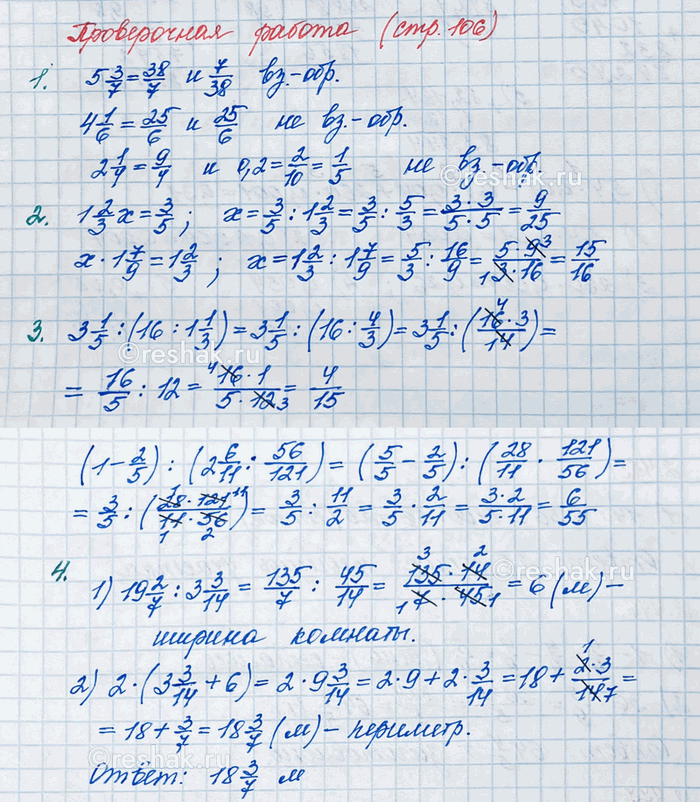 Проверочная работа (стр. 106)
1. 5 3/7 = 38/7 и 7/38 вз.-обр.
4 1/6 = 25/6 и 25/6 не вз.-обр.
2 1/4 = 9/4 и 0,2 = 2/10 = 1/5 не вз.-обр.
2. 1 2/3 x = 3/5; x = 3/5 : 1 2/3 = 3/5 : 5/3 = 3·3/5·5 = 9/25
x · 1 7/9 = 1 2/3; x = 1 2/3 : 1 7/9 = 5/3 : 16/9 = 5·9 3/1 3·16 = 15/16
3. 3 1/5 : (16 : 1 1/3) = 3 1/5 : (16 : 4/3) = 3 1/5 : (4 16·3/1 4) =
= 16/5 : 12 = 4 16·1/5·12 3 = 4/15
(1 - 2/5) : (2 6/11 : 56/121) = (5/5 - 2/5) : (28/11 · 121/56) =
= 3/5 : (1 28·121 11/1 11·56 2) = 3/5 : 11/2 = 3/5 · 2/11 = 3·2/5·11 = 6/55
4. 1) 19 2/7 : 3 3/14 = 135/7 : 45/14 = 3 135·14 2/1 7·45 1 = 6 (м) –
ширина комнаты.
2) 2·(3 3/14 + 6) = 2·9 3/14 = 2·9 + 2·3/14 = 18 + 1 2·3/14 7 =
= 18 + 3/7 = 18 3/7 (м) – периметр.
Ответ: 18 3/7 м
©reshak.ru
©reshak.ru
©reshak.ru
©reshak.ru